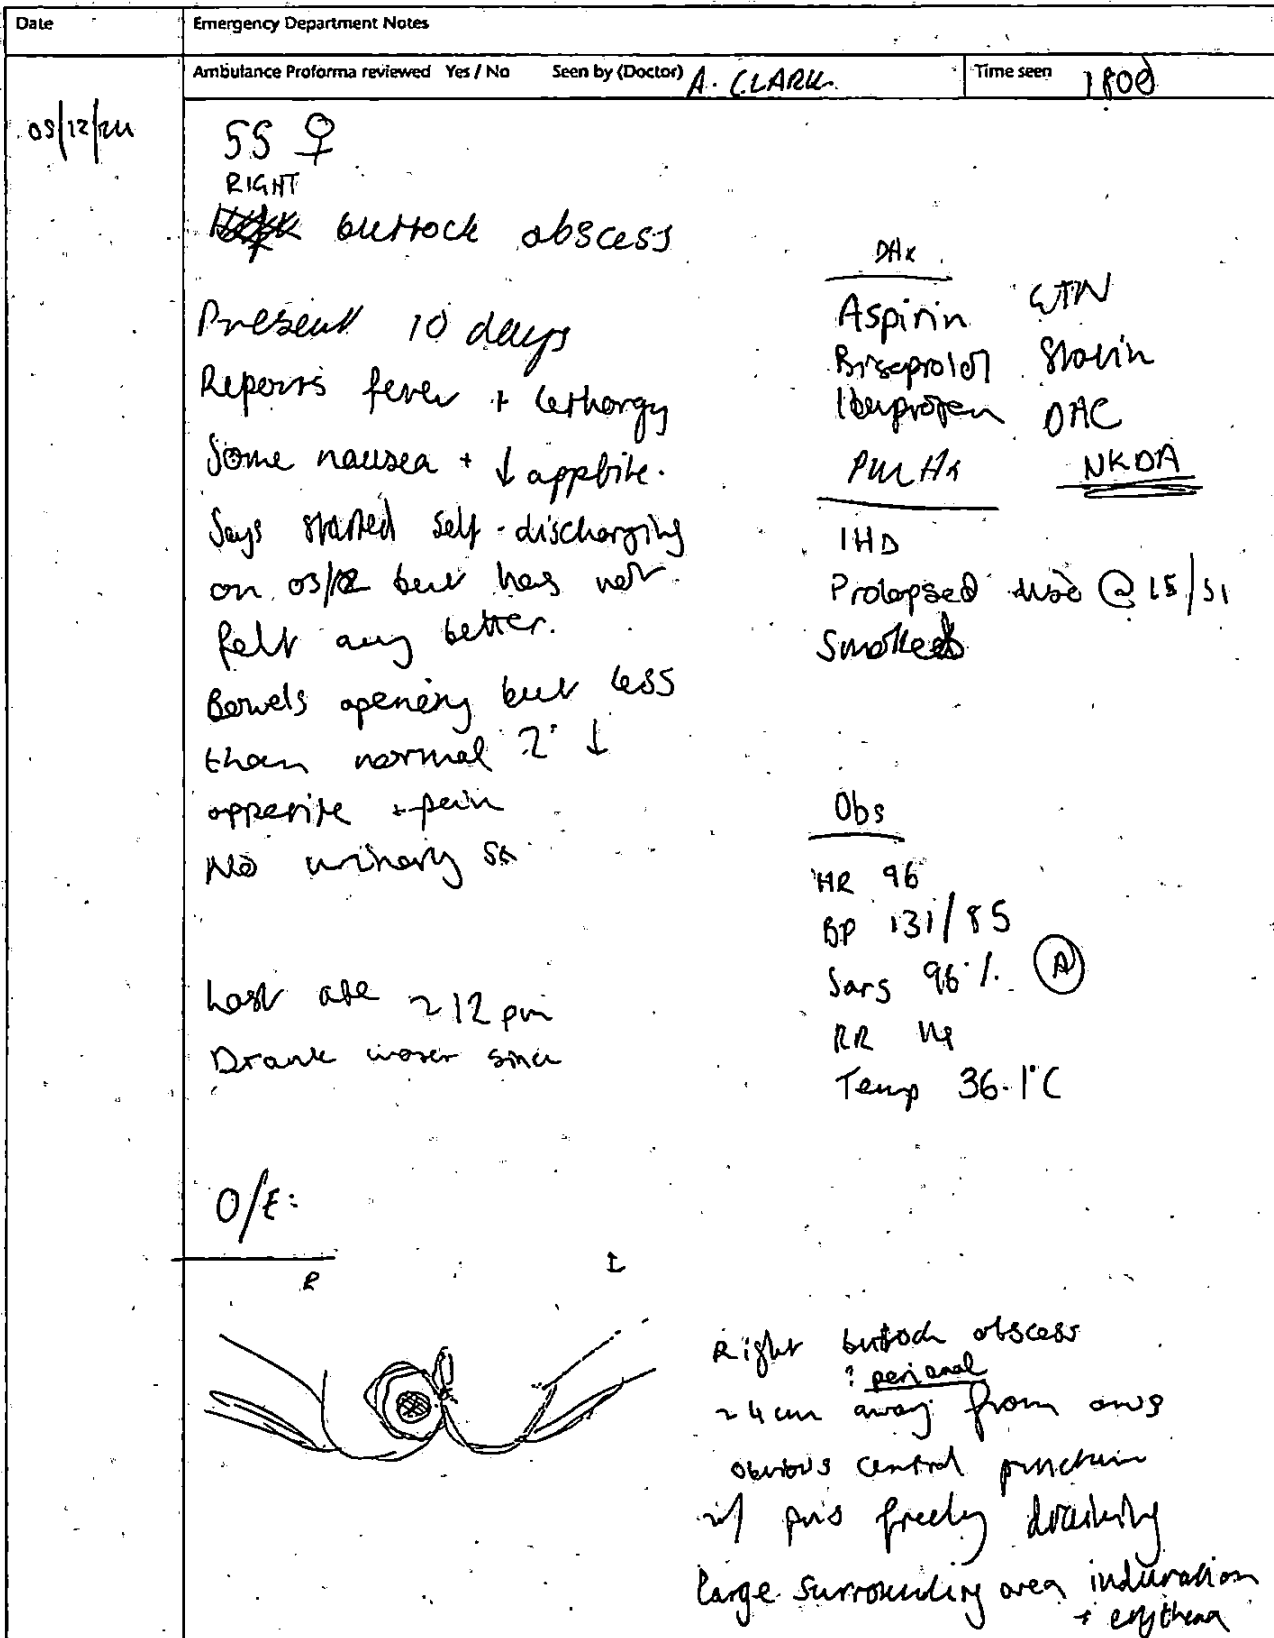 Date
Emergency Department Notes
Ambulance Proforma reviewed Yes / No Seen by (Doctor) A. CLARK Time seen 1800
55 ♀
RIGHT
buttock abscess
Present 10 days
Reports fever + lethargy
Some nausea + ↓ appetite.
Says started self-discharging
on 03/12 but has not
felt any better.
Bowels opening but less
than normal 2° ↓
appetite + pain
No urinary Sx
Last ate ~12 pm
Drank water since
DHx
Aspirin GTN
Bisoprolol Statin
Ibuprofen OAC
PMHx NKDA
IHD
Prolapsed disc @ L5/S1
Smoker
Obs
HR 96
BP 131/85
Sats 96% (A)
RR 14
Temp 36.1°C
O/E:
R L
Right buttock abscess
? perianal
~4cm away from anus
obvious central punctum
w/ pus freely draining
large surrounding area induration
+ erythema